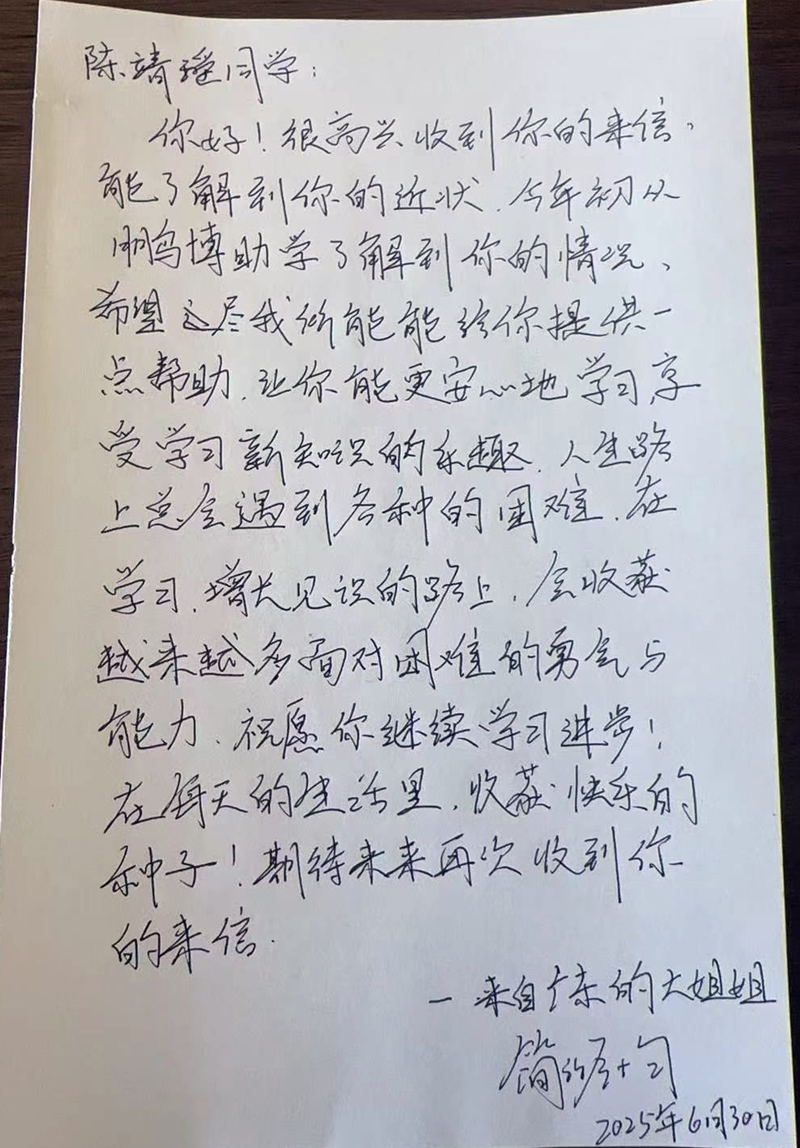 陈靖瑶同学：
你好！很高兴收到你的来信，
能了解到你的近状。今年初从
鹏博助学了解到你的情况，
希望尽我所能能给你提供一
点帮助，让你能更安心地学习，享
受学习新知识的乐趣。人生路
上总会遇到各种的困难，在
学习、增长见识的路上，会收获
越来越多面对困难的勇气与
能力。祝愿你继续学习进步！
在每天的生活里，收获快乐的
种子！期待未来再次收到你
的来信。
—来自广东的大姐姐
简
2025年6月30日